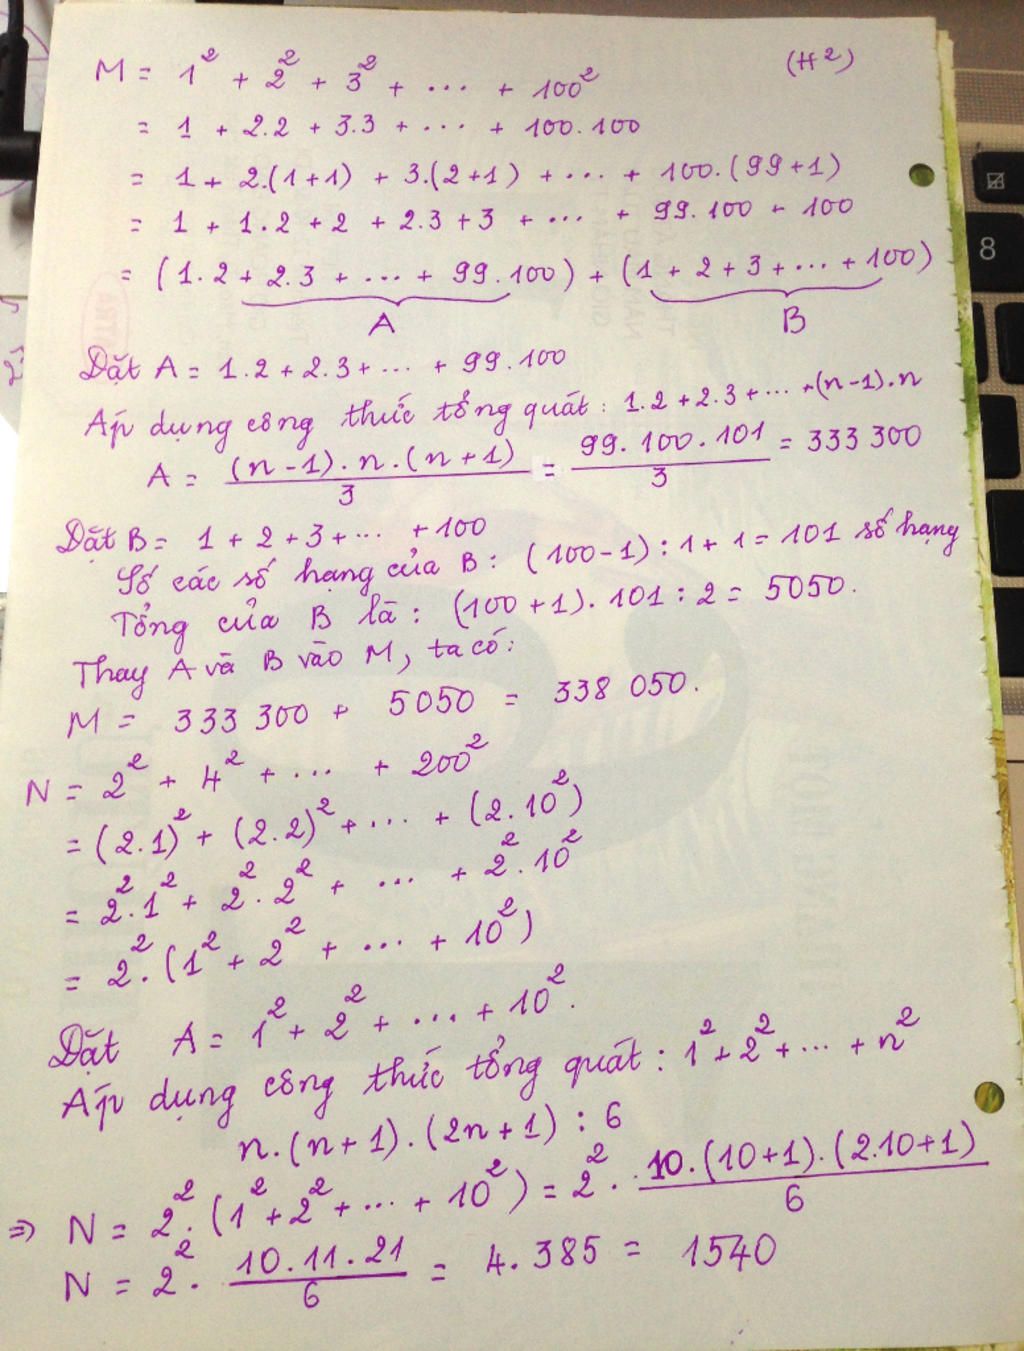 M = 1² + 2² + 3² + ... + 100² (H²)
= 1 + 2.2 + 3.3 + ... + 100.100
= 1 + 2.(1+1) + 3.(2+1) + ... + 100.(99+1)
= 1 + 1.2 + 2 + 2.3 + 3 + ... + 99.100 + 100
= (1.2 + 2.3 + ... + 99.100) + (1 + 2 + 3 + ... + 100)
A B
Đặt A = 1.2 + 2.3 + ... + 99.100
Áp dụng công thức tổng quát: 1.2 + 2.3 + ... + (n-1).n
A = (n-1).n.(n+1)/3 = 99.100.101/3 = 333 300
Đặt B = 1 + 2 + 3 + ... + 100
Số các số hạng của B: (100-1):1+1 = 101 số hạng
Tổng của B là: (100+1).101:2 = 5050.
Thay A và B vào M, ta có:
M = 333 300 + 5050 = 338 050.
N = 2² + 4² + ... + 200²
= (2.1)² + (2.2)² + ... + (2.10²)
= 2².1² + 2².2² + ... + 2².10²
= 2².(1² + 2² + ... + 10²)
Đặt A = 1² + 2² + ... + 10².
Áp dụng công thức tổng quát: 1² + 2² + ... + n²
n.(n+1).(2n+1) : 6
⇒ N = 2².(1² + 2² + ... + 10²) = 2².10.(10+1).(2.10+1)/6
N = 2².10.11.21/6 = 4.385 = 1540
8